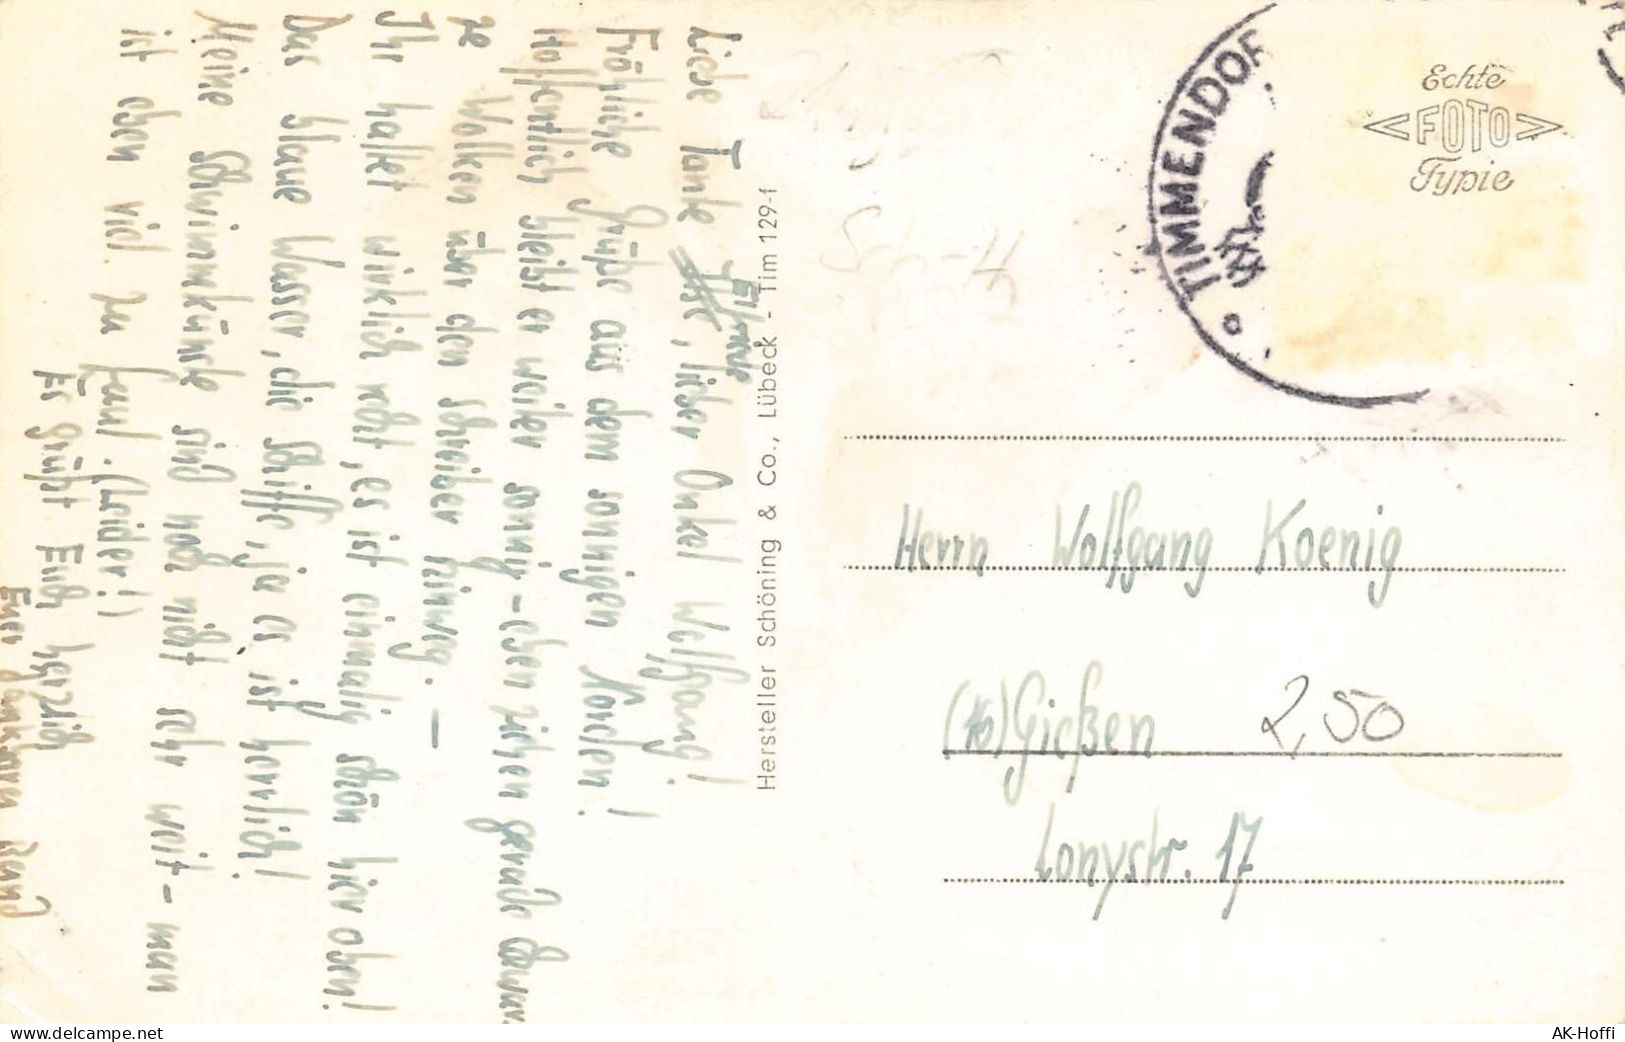 Liebe Tante Ilse, lieber Onkel Wolfgang!
Elfriede
Fröhliche Grüße aus dem sonnigen Norden!
Hoffentlich bleibt er weiter sonnig - eben ziehen gerade schwar-
ze Wolken über den Schreiber hinweg. -
Ihr hattet wirklich recht, es ist einmalig schön hier oben!
Das blaue Wasser, die Schiffe, ja es ist herrlich!
Meine Schwimmkünste sind noch nicht sehr weit - man
ist eben viel zu faul. (Leider!)
Es grüßt Euch herzlich
Euer dankbarer
Hersteller Schöning & Co., Lübeck - Tim 129-f
TIMMENDORF
Echte
<FOTO>
Typie
Herrn Wolfgang Koenig
(16) Gießen
250
Lonystr. 17
www.delcampe.net
AK-Hoffi